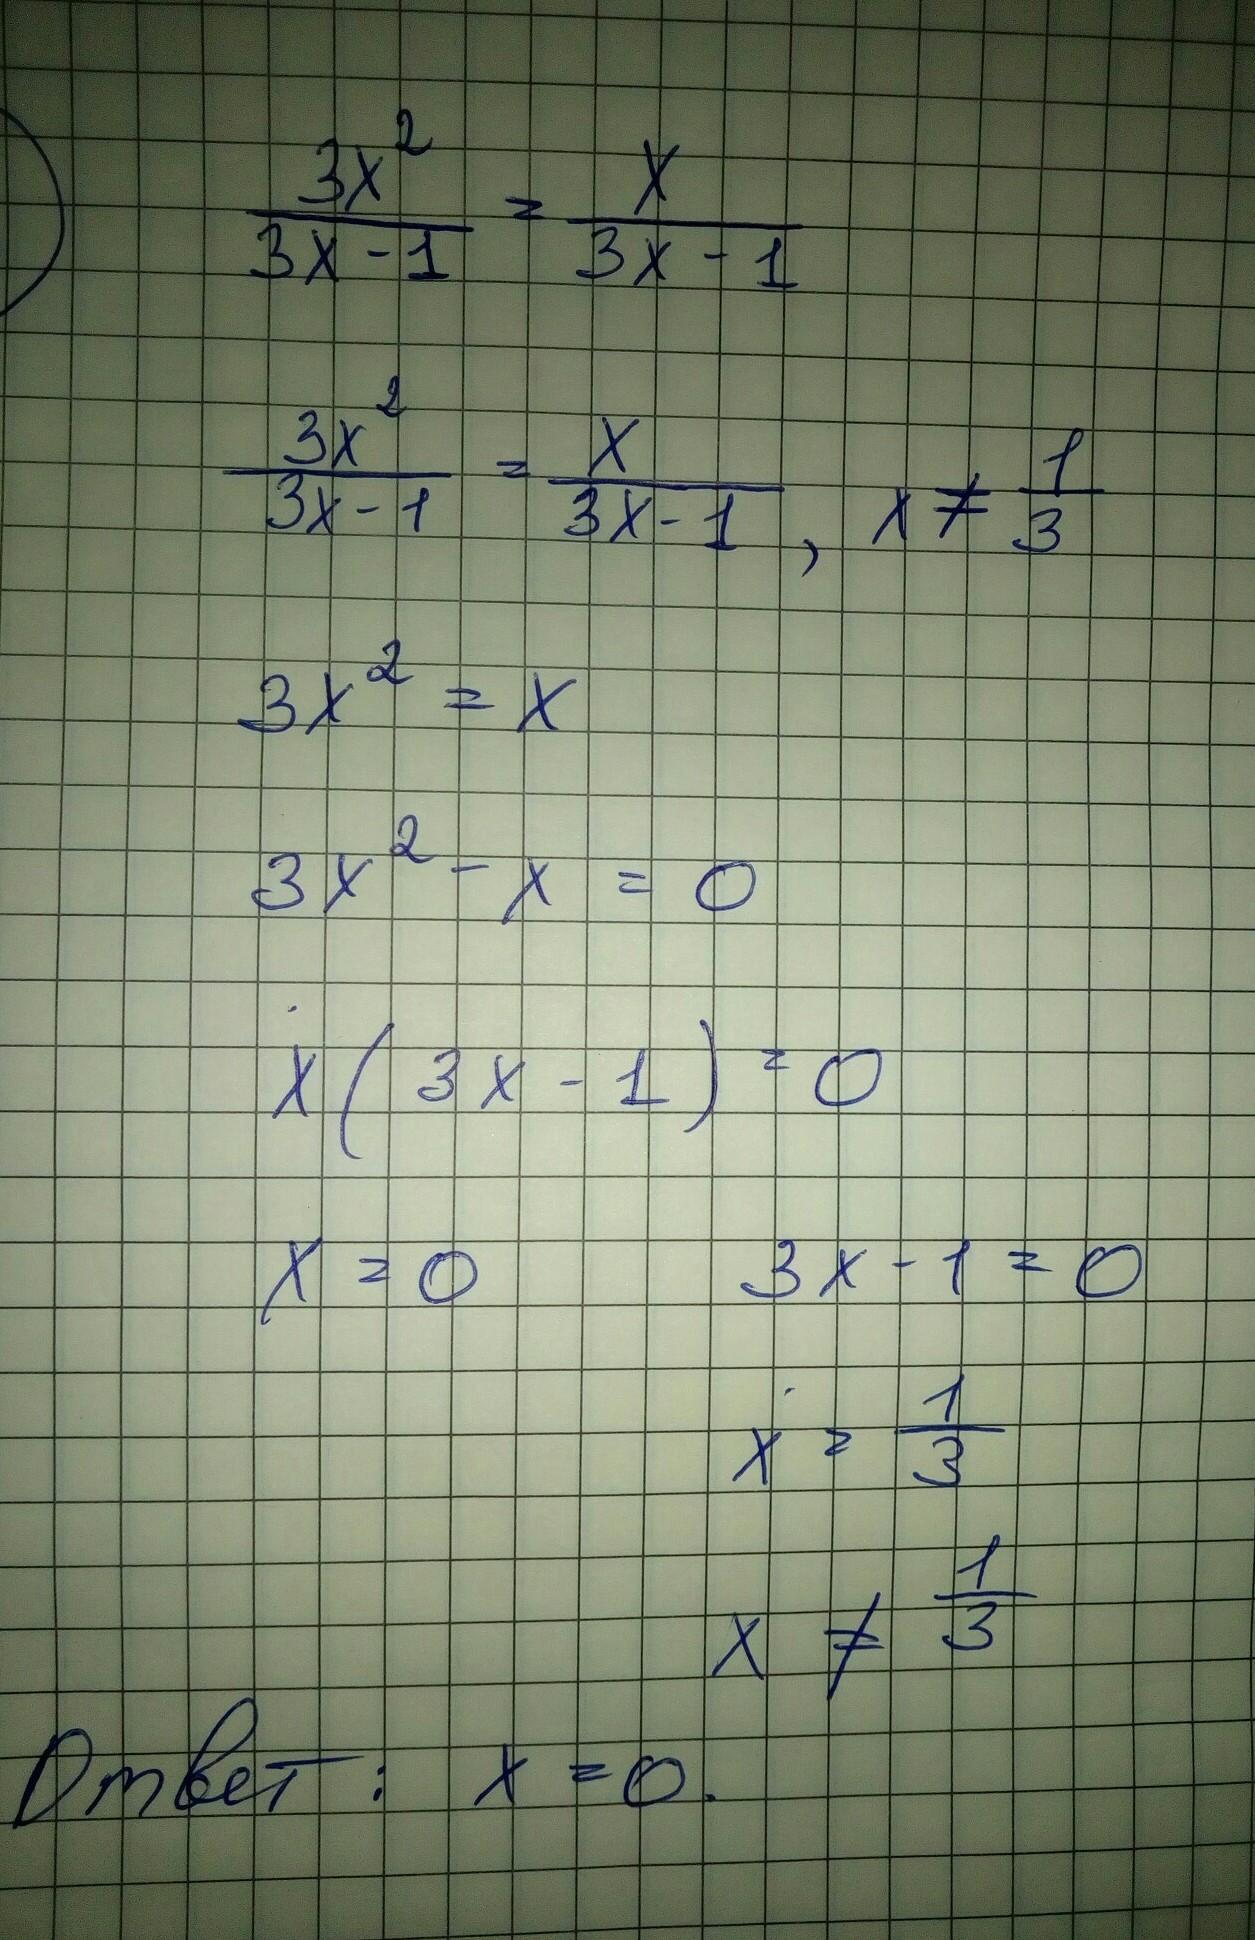 3x² / 3x - 1 = x / 3x - 1
3x² / 3x - 1 = x / 3x - 1 , x ≠ 1/3
3x² = x
3x² - x = 0
x ( 3x - 1 ) = 0
x = 0 3x - 1 = 0
x = 1/3
x ≠ 1/3
Ответ: x = 0.